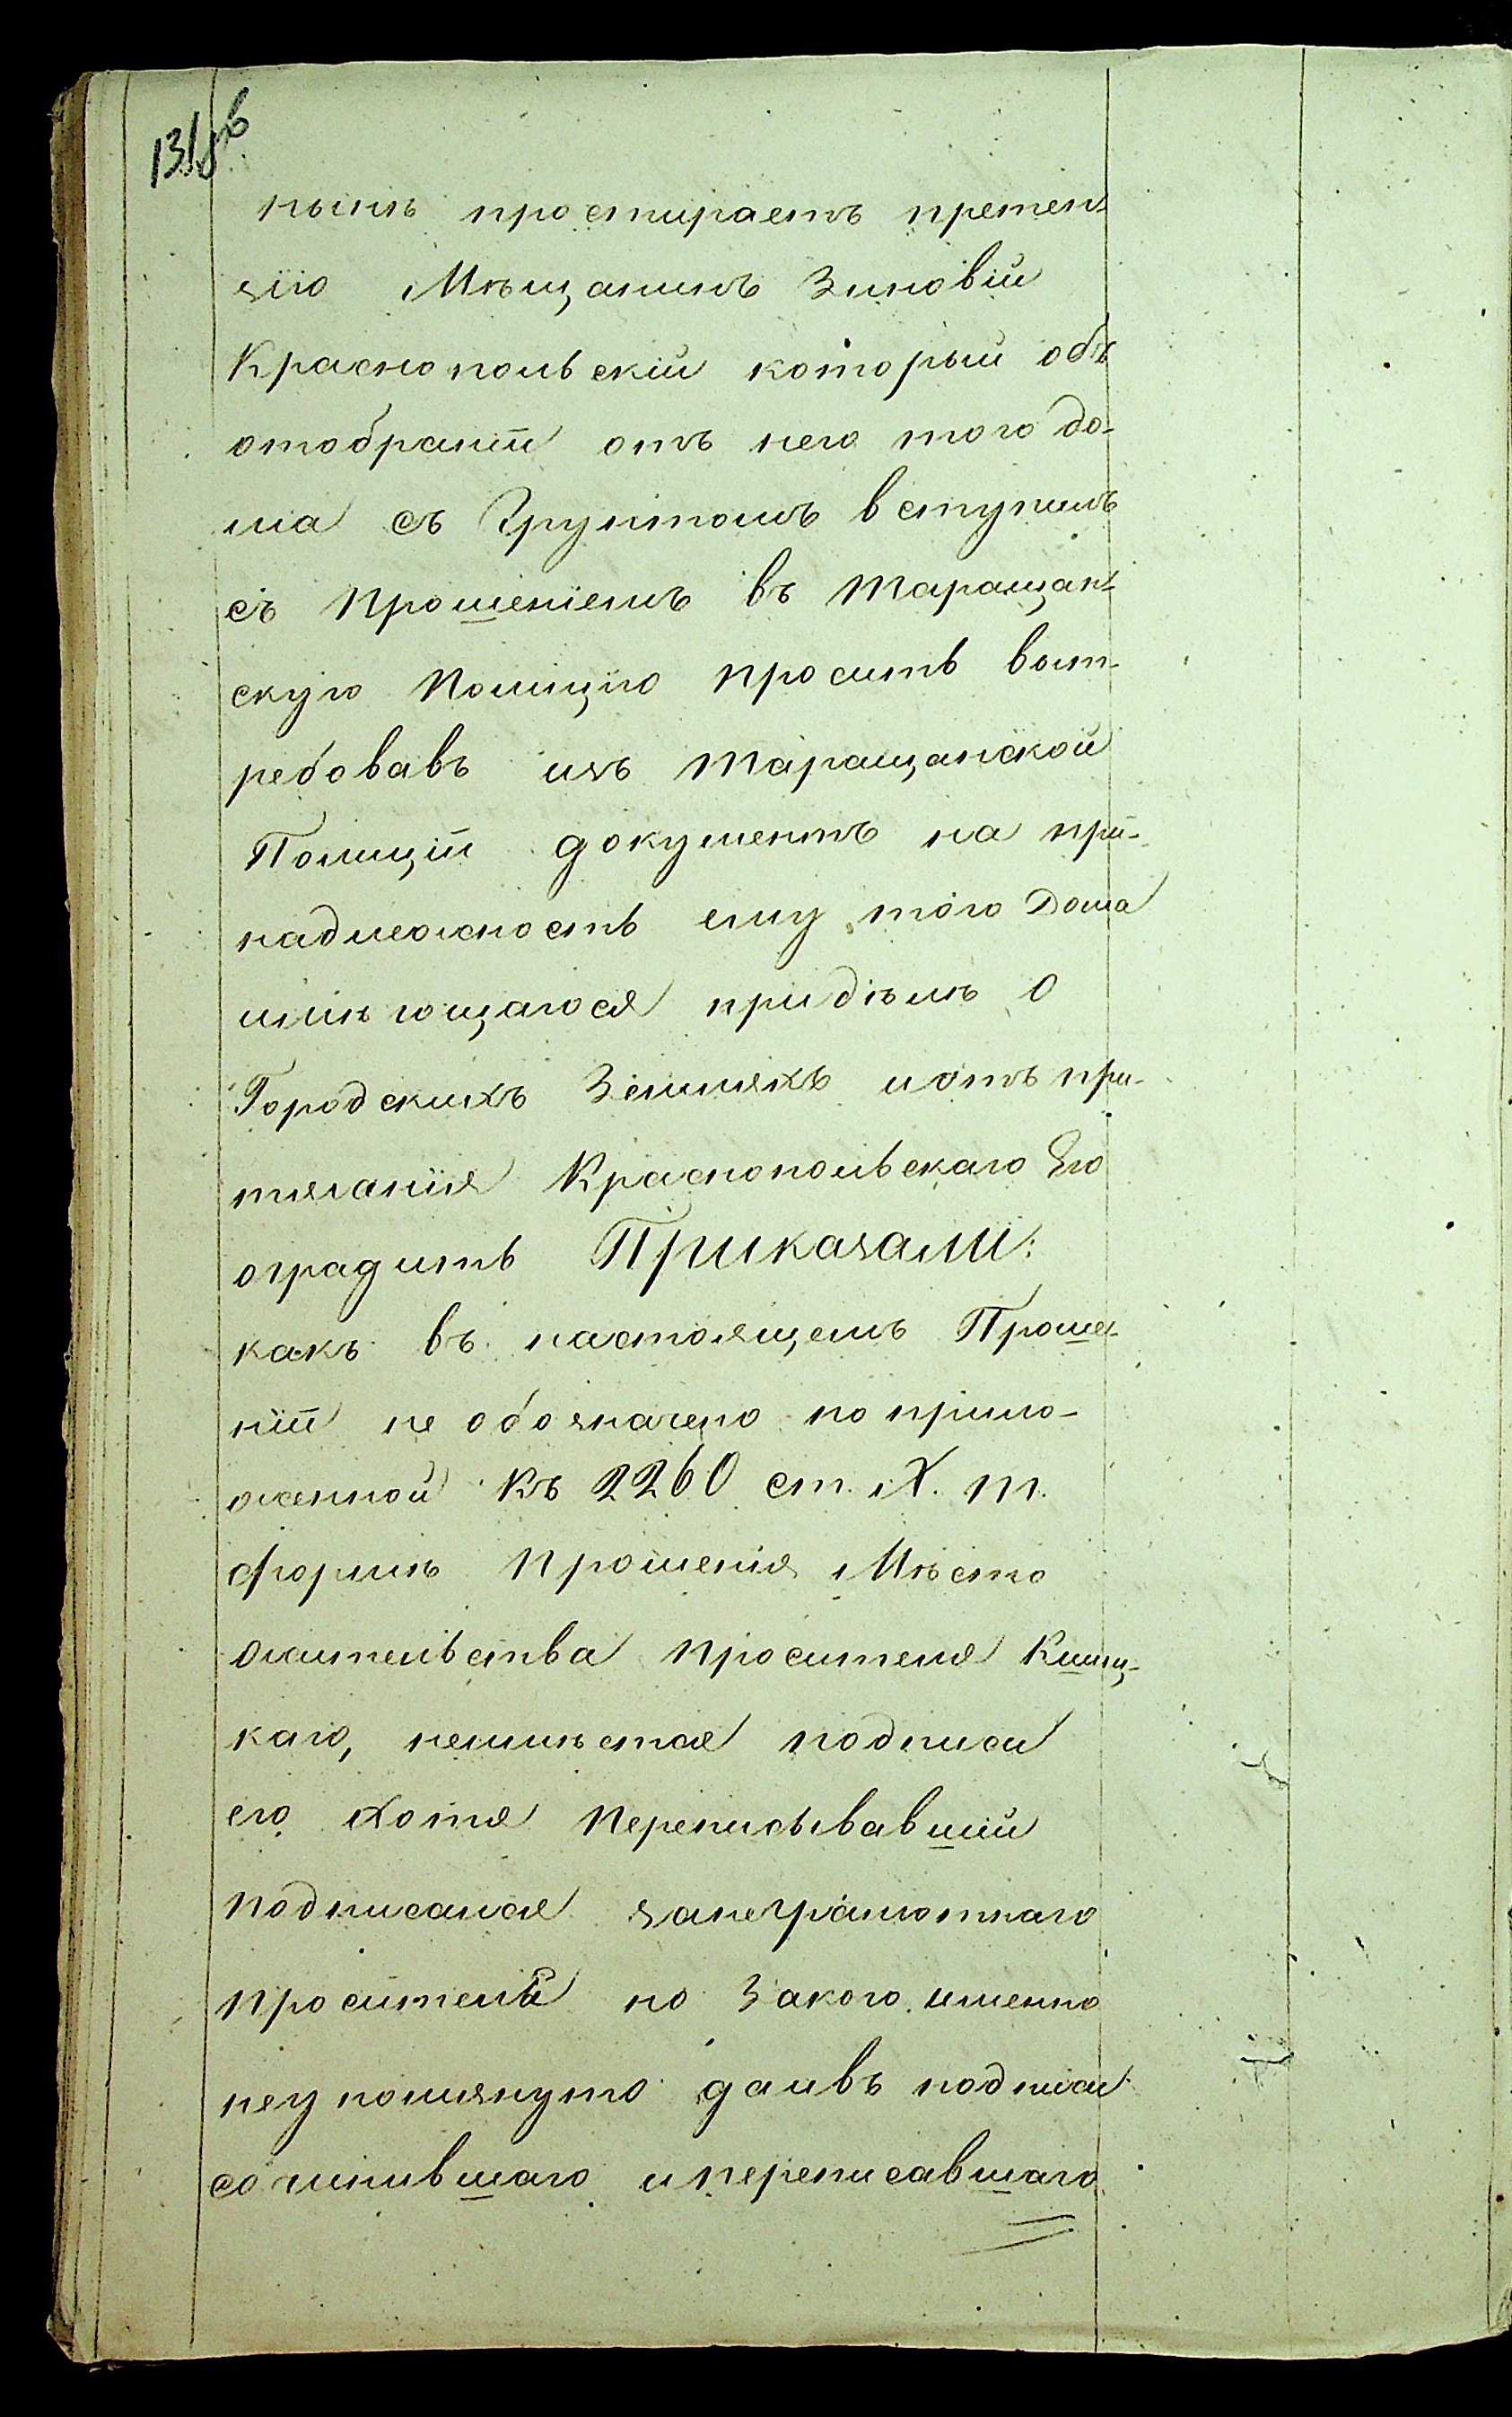 131 об
нынѣ простираетъ претен-
зію Мѣщанинъ Зиновій
Краснопольскій который объ
отобраніи отъ него того до-
ма съ Грунтомъ вступилъ
съ Прошеніемъ въ Таращан-
скую Полицію проситъ выт-
ребовавъ изъ Таращанской
Полиціи документъ на при-
надлежность ему того Дома
имѣющагося придѣлѣ о
Городскихъ Земляхъ иотъ при-
тязанія Краснопольскаго Его
оградить Приказали:
какъ въ настоящемъ Проше-
ніи не обозначено по прило-
женной къ 2260 ст. X. т.
формѣ Прошенія Мѣсто
жительства Просителя
каго, неимѣется подписи
его хотя Переписывавшій
Подписался занеграмотнаго
просителя но Закого именно
неупомянуто далѣе подписи
сочинившаго ипереписавшаго